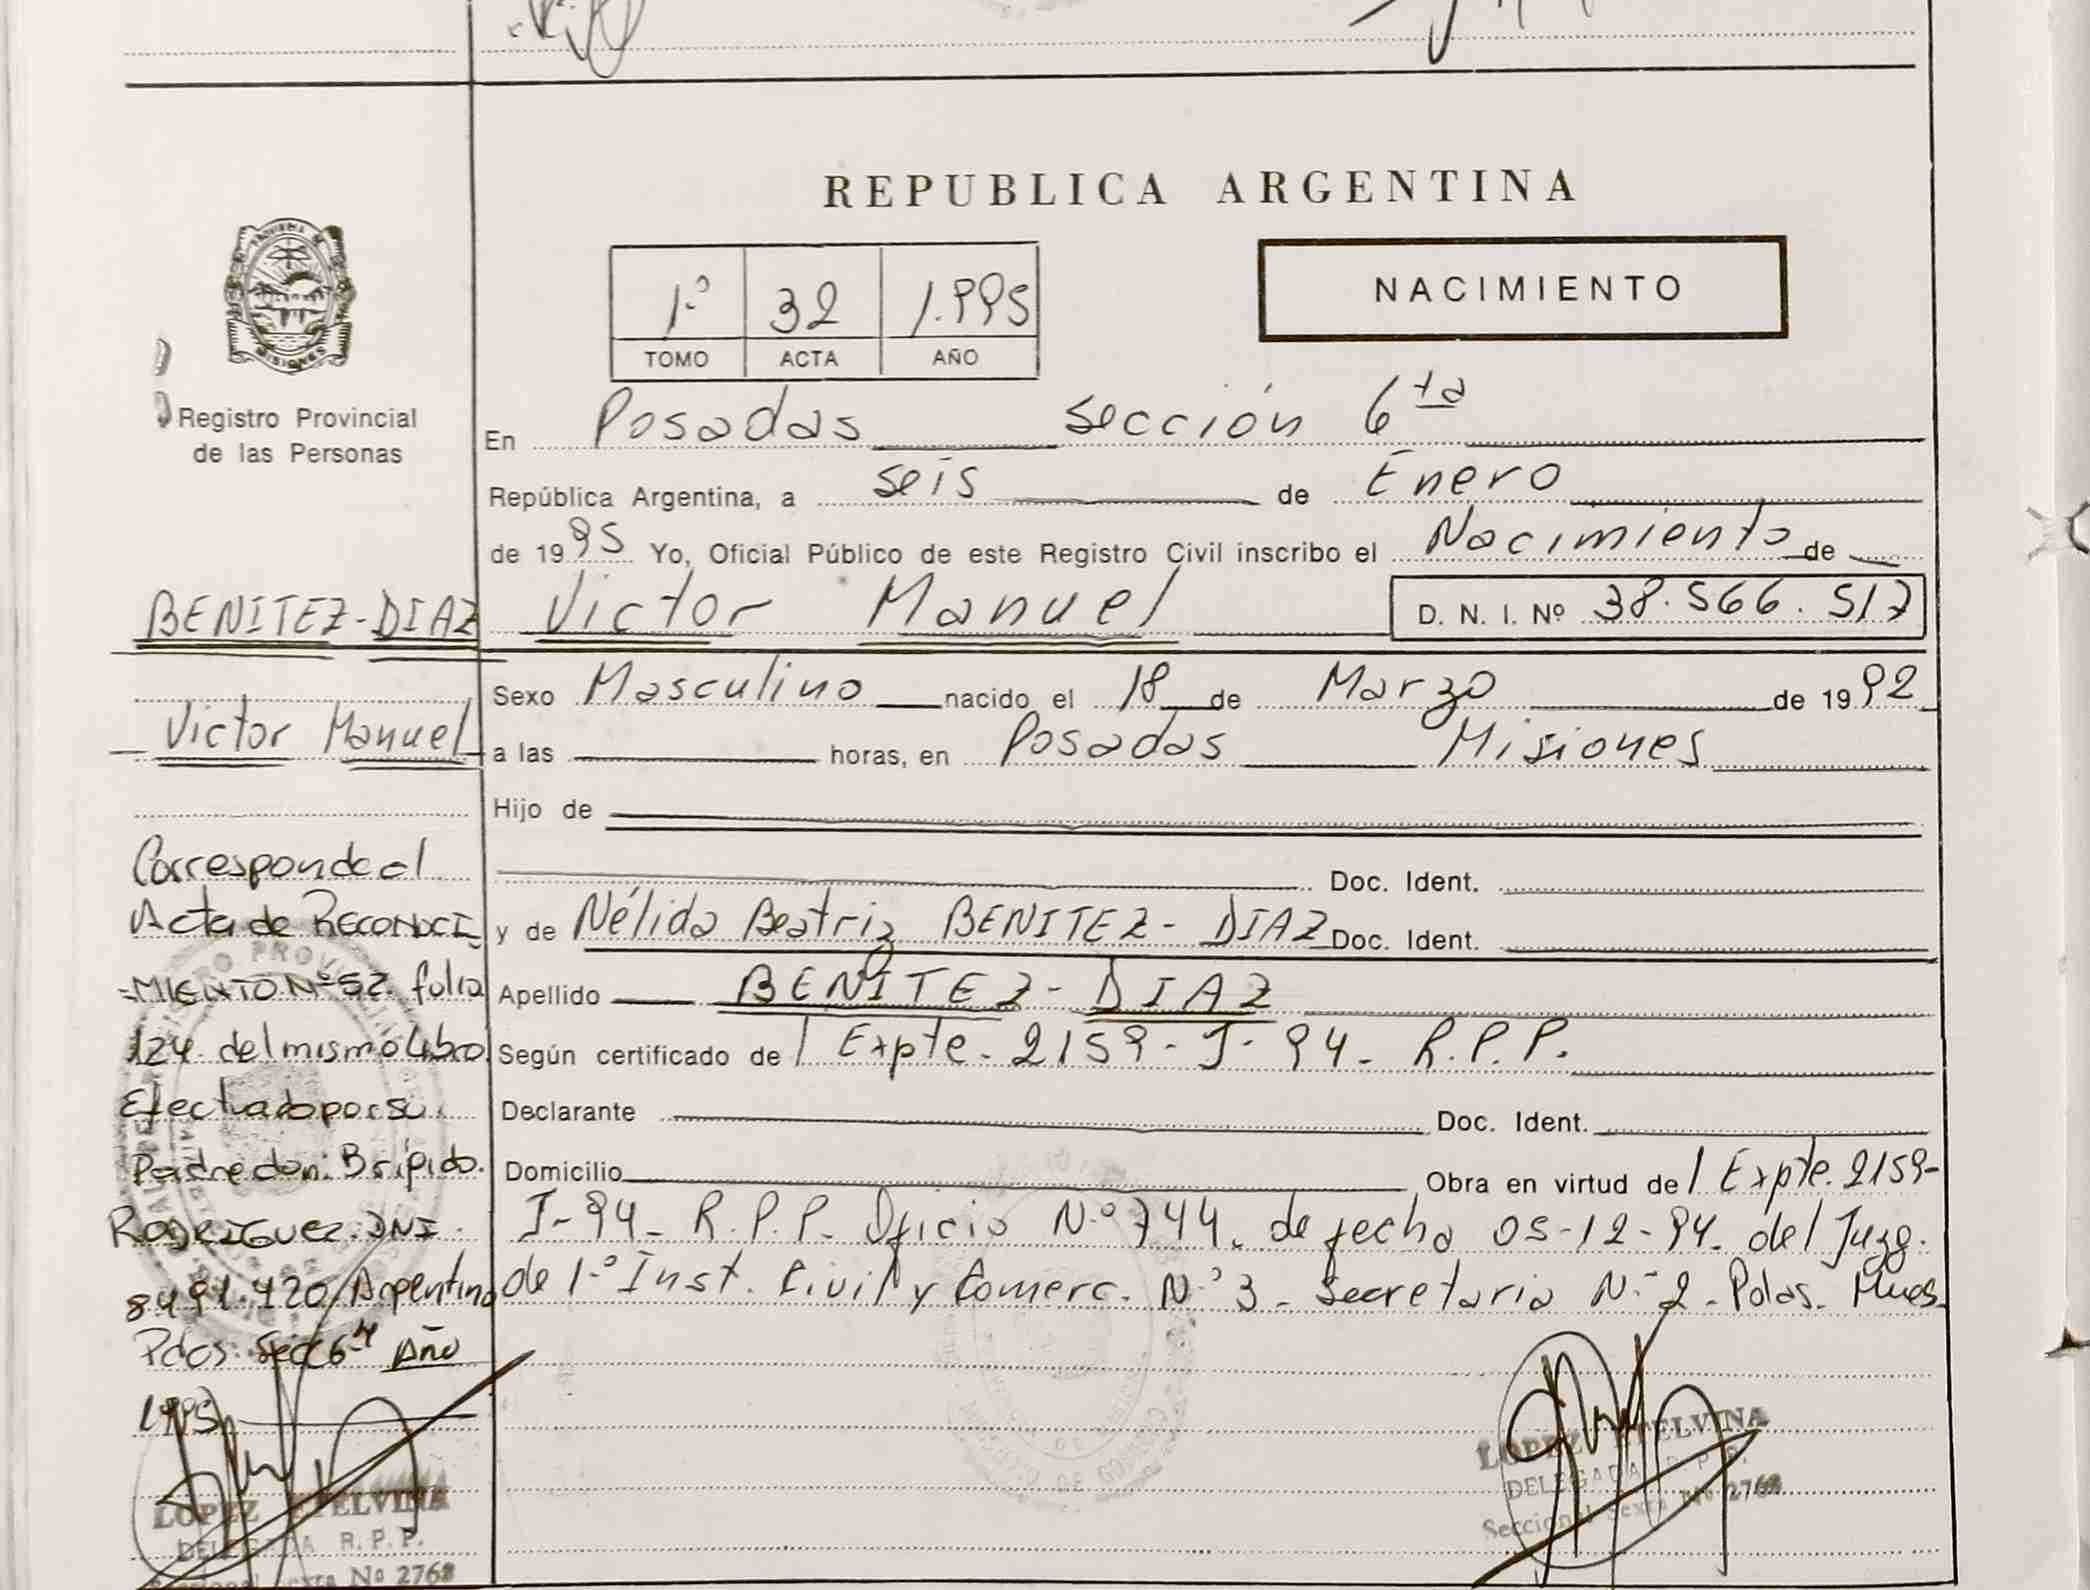 REPUBLICA ARGENTINA
1º 32 1.995
TOMO ACTA AÑO
NACIMIENTO
PROVINCIA DE
MISIONES
Registro Provincial
de las Personas
En Posadas sección 6ta
República Argentina, a seis de Enero
de 1995 Yo, Oficial Público de este Registro Civil inscribo el Nacimiento de
Victor Manuel D. N. I. Nº 38.566.517
Sexo Masculino nacido el 18 de Marzo de 1992
a las horas, en Posadas Misiones
Hijo de
Doc. Ident.
y de Nélida Beatriz BENITEZ - DIAZ Doc. Ident.
Apellido BENITEZ - DIAZ
Según certificado de l Expte. 2159-J-94- R.P.P.
Declarante Doc. Ident.
Domicilio Obra en virtud de l Expte. 2159-
J-94- R.P.P. Oficio N.º 744. de fecha 05-12-94. del Juzg.
de 1.º Inst. Civil y Comerc. N.º 3 - Secretaria N.º 2 - Pdas. Mnes.
BENITEZ-DIAZ
Victor Manuel
Corresponde al
Acta de RECONOCI
-MIENTO Nº 52 folio
124 del mismo Libro
Efectuado por su
Padre don: Brígido
RODRIGUEZ. DNI
8491.420/Argentino
Pdas. Secc 6ta Año
1995
LOPEZ ETELVINA
DELEGADA R.P.P.
Seccional Sexta Nº 2768
LOPEZ ETELVINA
DELEGADA R.P.P.
Seccional Sexta Nº 2768